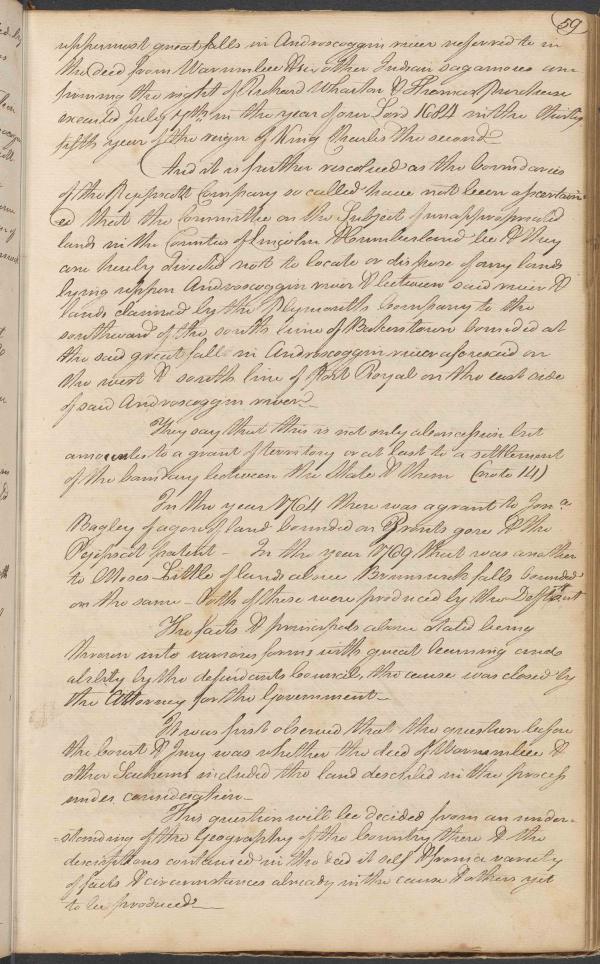 59
uppermost great falls in Androscoggin river referred to in
the deed from Warumbee & six other Indian Sagamores con-
firming the right of Richard Wharton & Thomas Purchase
executed July 7th in the year of our Lord 1684 in the thirty
fifth year of the reign of King Charles the second—
And it is further resolved as the boundaries
of the Pejepscot Company so called have not been ascertain
ed that the Committee on the Subject of unappropriated
lands in the Counties of Lincoln & Cumberland be & they
are hereby directed not to locate or dispose of any lands
lying uppon Androscoggin river & between said river &
lands claimed by the Plymouth Company to the
southward of the south line of Bakerstown bounded at
the said great falls in Androscoggin river aforesaid on
the west & south line of Port Royal on the east side
of said Androscoggin river—
They say that this is not only a concession but
amountes to a grant of territory or at least to a settlement
of the boundary between the State & them (note 14)
In the year 1764 there was a grant to Jona
Bagley of a gore of land bounded on Prouts gore & the
Pejepscot patent – In the year 1769 that was another
to Moses Little of lands above Brunswick falls bounded
on the same – both of these were produced by the Defendant
The facts & principals above stated being
thrown into various forms with great learning and
ability by the defendants council, the cause was closed by
the Attorney for the Government—
It was first observed that the question before
the Court & Jury was whether the deed of Warumbee &
other Sachems included the land described in the process
under consideration—
This question will be decided from an under-
standing of the Geography of the Country there & the
descriptions contained in the deed it self & from a variety
of facts & circumstances already in the cause & others yet
to be produced—